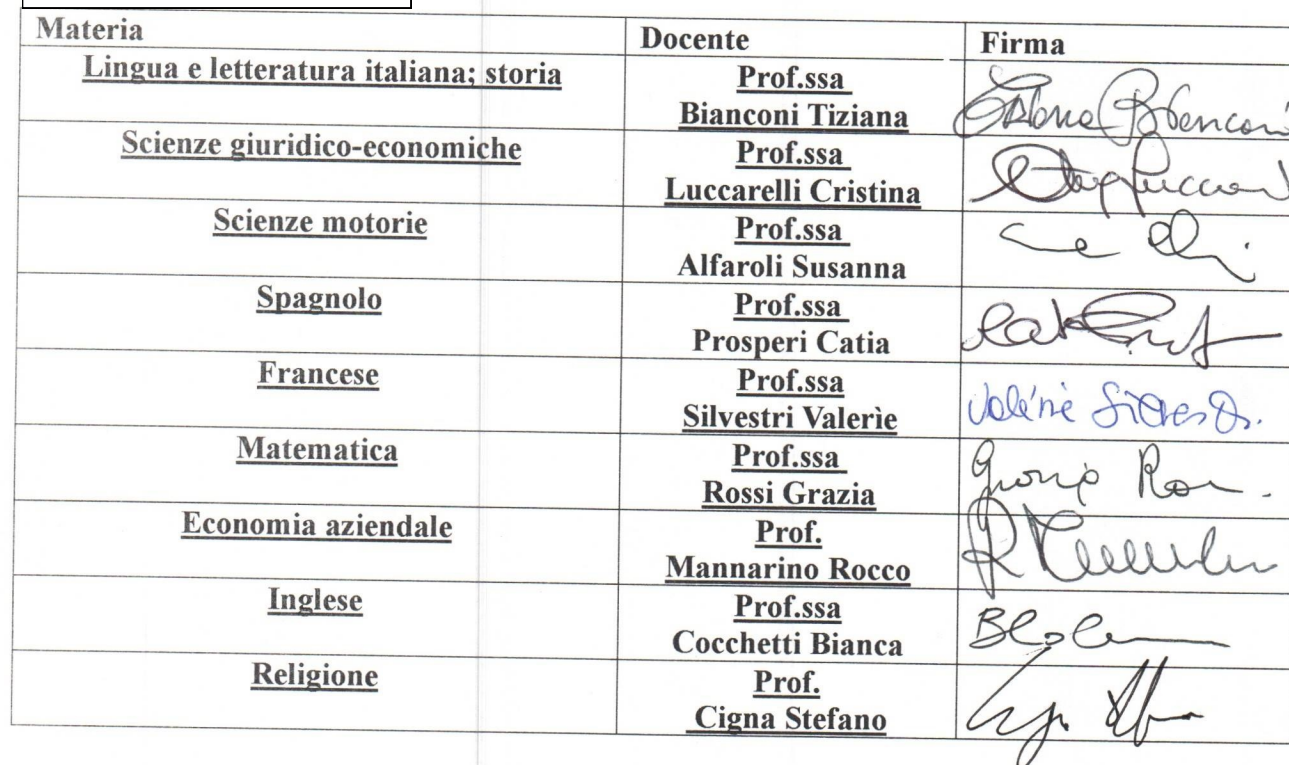 Materia Docente Firma
Lingua e letteratura italiana; storia Prof.ssa
Bianconi Tiziana
Scienze giuridico-economiche Prof.ssa
Luccarelli Cristina
Scienze motorie Prof.ssa
Alfaroli Susanna
Spagnolo Prof.ssa
Prosperi Catia
Francese Prof.ssa
Silvestri Valerìe
Matematica Prof.ssa
Rossi Grazia
Economia aziendale Prof.
Mannarino Rocco
Inglese Prof.ssa
Cocchetti Bianca
Religione Prof.
Cigna Stefano